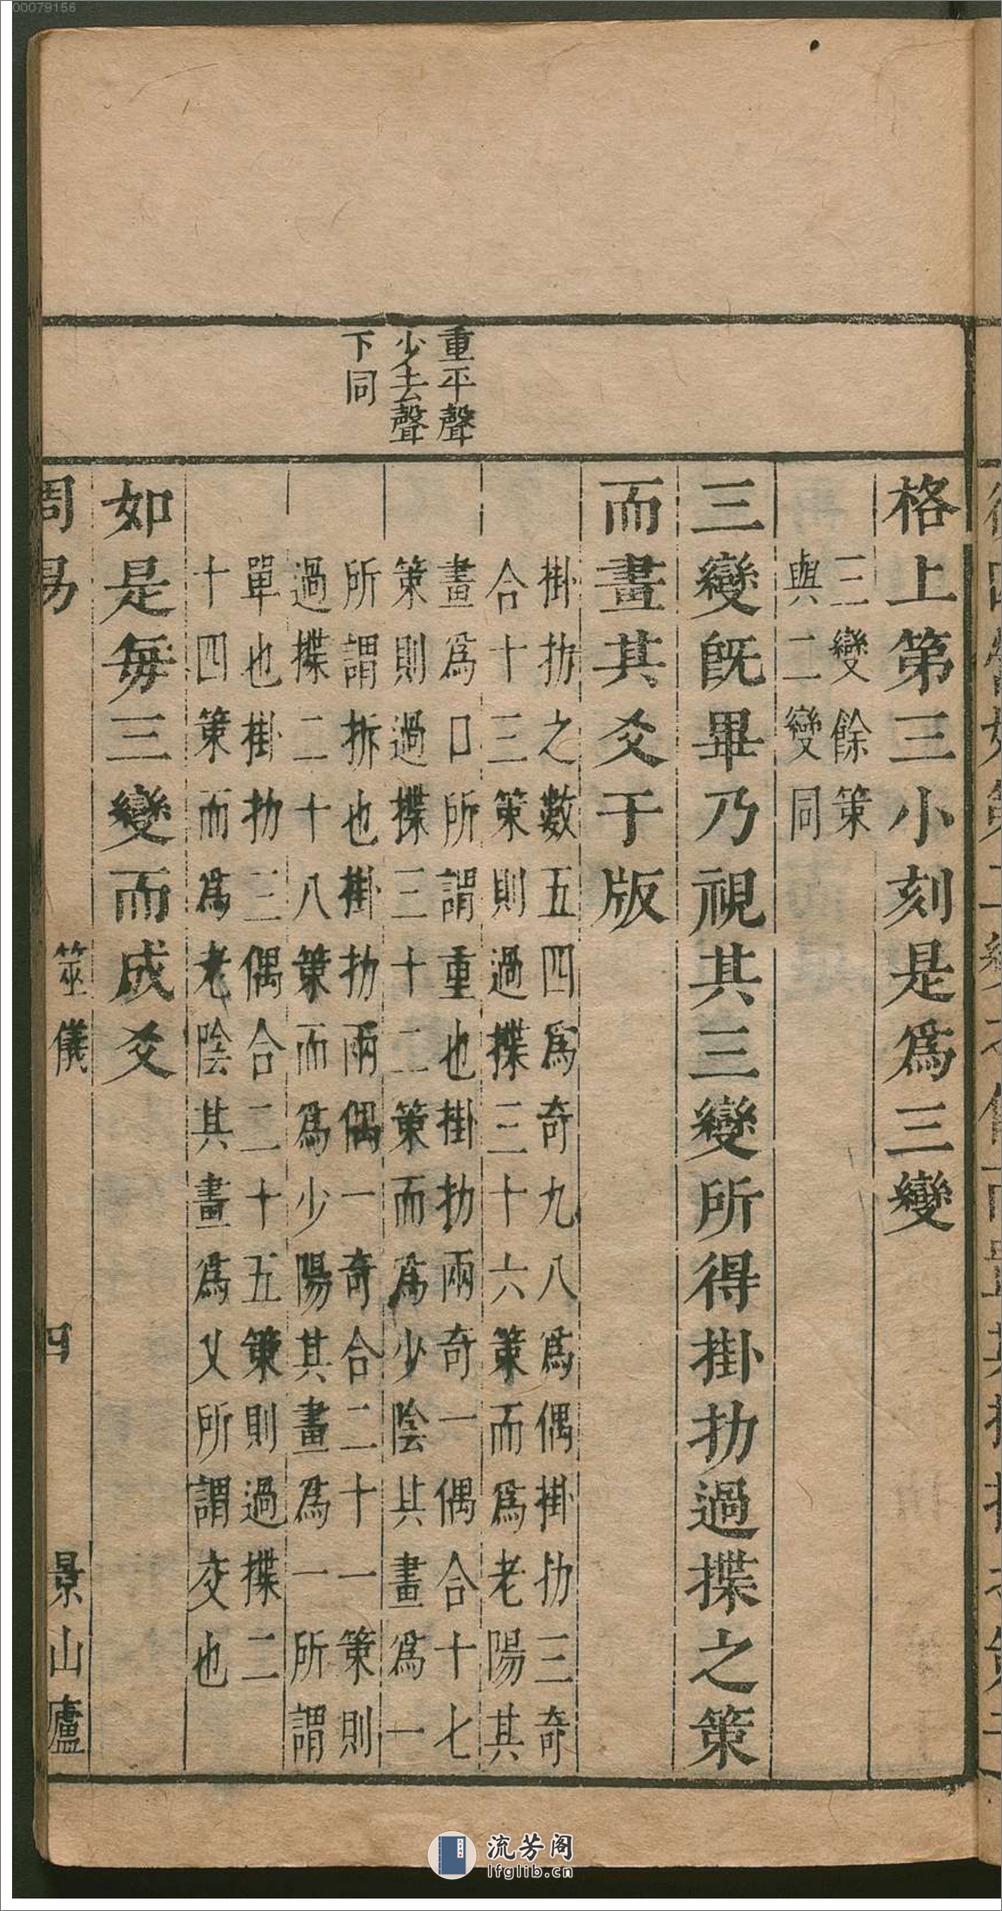 00079156
重平聲
少去聲
下同
格上第三小刻是爲三變
三變餘策
與二變同
三變旣畢乃視其三變所得掛扐過揲之策
而畫其爻于版
掛扐之數五四爲奇九八爲偶掛扐三奇
合十三策則過揲三十六策而爲老陽其
畫爲口所謂重也掛扐兩奇一偶合十七
策則過揲三十二策而爲少陰其畫爲一
所謂拆也掛扐兩偶一奇合二十一策則
過揲二十八策而爲少陽其畫爲一所謂
單也掛扐三偶合二十五策則過揲二
十四策而爲老陰其畫爲乂所謂交也
如是每三變而成爻
周易 筮儀 四 景山廬
流芳阁
lfglib.cn